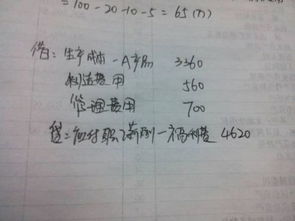 =100-20-10-5=65(万)
借:生产成本-A产品 3360
制造费用 560
管理费用 700
贷:应付职工薪酬-福利费 4620